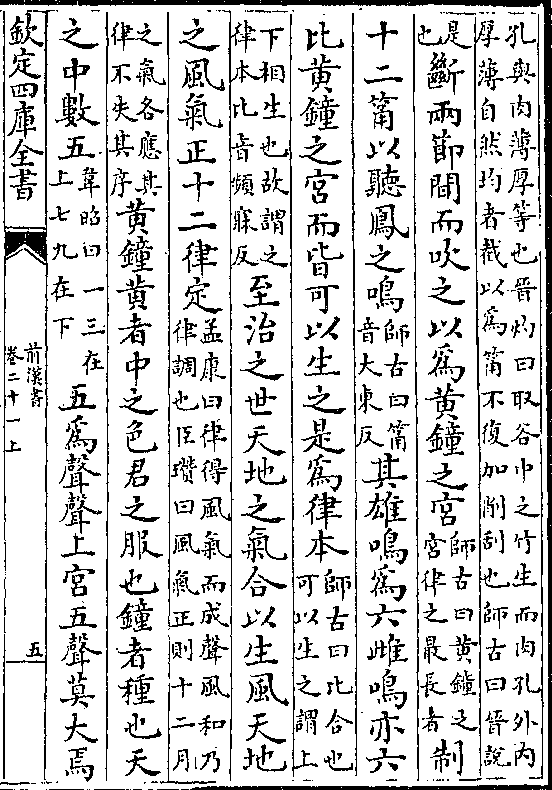 孔與肉薄厚等也晉灼曰取谷中之竹生而肉孔外内
厚薄自然均者截以爲筩不復加削刮也師古曰晉說
是也斷兩節閒而吹之以爲黄鐘之宮師古曰黄鐘之宮律之最長者制
十二筩以聽鳳之鳴師古曰筩音大東反其雄鳴爲六雌鳴亦六
比黄鐘之宮而皆可以生之是爲律本師古曰比合也可以生之謂上
下相生也故謂之律本比音頻寐反至治之世天地之氣合以生風天地
之風氣正十二律定孟康曰律得風氣而成聲風和乃律調也臣瓚曰風氣正則十二月
之氣各應其律不失其序黄鐘黄者中之色君之服也鐘者種也天
之中數五韋昭曰一三在上七九在下五爲聲聲上宮五聲莫大焉
欽定四庫全書
前漢書
卷二十一上
五